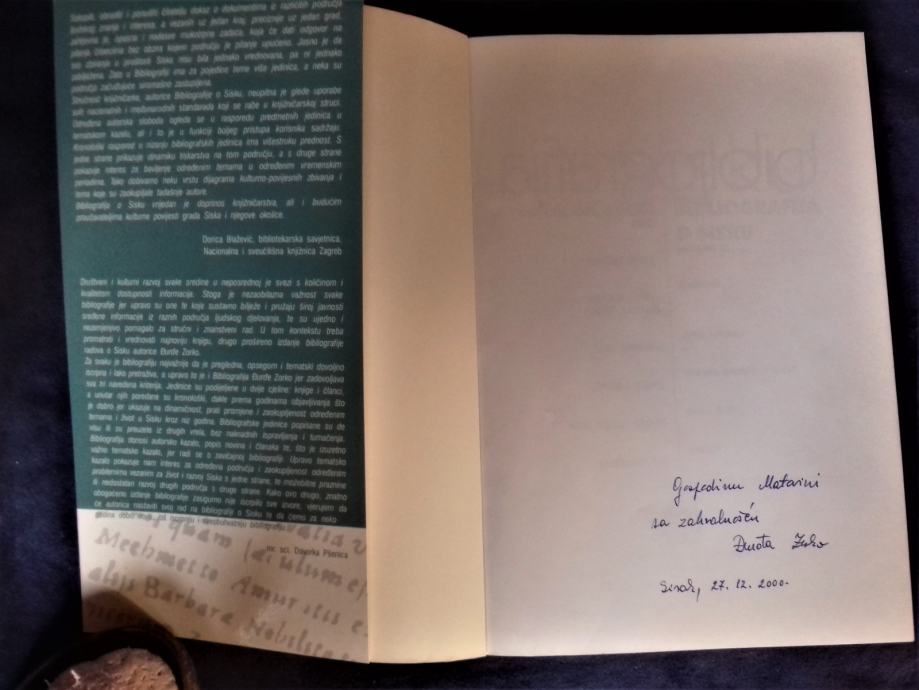 Sakupiti, obraditi i ponuditi čitatelju dokaz o dokumentima iz različitih područja
ljudskog znanja i interesa, a vezanih uz jedan kraj, preciznije uz jedan grad,
zahtjevna je, naporna i nadasve mukotrpna zadaća, koja će dati odgovor na
pitanja čitateljima bez obzira kojem području je pitanje upućeno. Jasno je da
sva zbivanja u prošlosti Siska nisu bila jednako vrednovana, pa ni jednako
zabilježena. Zato u Bibliografiji ima za pojedine teme više jedinica, a neka su
područja začuđujuće siromašno zastupljena.
Stručnost knjižničarke, autorice Bibliografije o Sisku, neupitna je glede uporabe
svih nacionalnih i međunarodnih standarada koji se rabe u knjižničarskoj struci.
Određena autorska sloboda ogleda se u rasporedu predmetnih jedinica u
tematskom kazalu, ali i to je u funkciji boljeg pristupa korisnika sadržaju.
Kronološki raspored u nizanju bibliografskih jedinica ima višestruku prednost. S
jedne strane prikazuje dinamiku tiskarstva na tom području, a s druge strane
pokazuje interes za bavljenje određenim temama u određenim vremenskim
periodima. Tako dobivamo neku vrstu dijagrama kulturno-povijesnih zbivanja i
tema koje su zaokupljale tadašnje autore.
Bibliografija o Sisku vrijedan je doprinos knjižničarstvu, ali i budućim
proučavateljima kulturne povijesti grada Siska i njegove okolice.
Dorica Blažević, bibliotekarska savjetnica,
Nacionalna i sveučilišna knjižnica Zagreb
Društveni i kulturni razvoj svake sredine u neposrednoj je svezi s količinom i
kvalitetom dostupnosti informacija. Stoga je nezaobilazna važnost svake
bibliografije jer upravo su one te koje sustavno bilježe i pružaju široj javnosti
sređene informacije iz raznih područja ljudskog djelovanja, te su ujedno i
nezamjenjivo pomagalo za stručni i znanstveni rad. U tom kontekstu treba
promatrati i vrednovati najnoviju knjigu, drugo prošireno izdanje bibliografije
radova o Sisku autorice Đurđe Zorko.
Za svaku je bibliografiju najvažnije da je pregledna, opsegom i tematski dovoljno
iscrpna i lako pretraživa, a upravo to je i Bibliografija Đurđe Zorko jer zadovoljava
sva tri navedena kriterija. Jedinice su podijeljene u dvije cjeline: knjige i članci,
a unutar njih poredane su kronološki, dakle prema godinama objavljivanja što
je dobro jer ukazuje na dinamičnost, prati promjene i zaokupljenost određenim
temama i život u Sisku kroz niz godina. Bibliografske jedinice popisane su de
visu ili su preuzete iz drugih vrela, bez naknadnih ispravljanja i tumačenja.
Bibliografija donosi autorsko kazalo, popis novina i časopisa te, što je izuzetno
važno tematsko kazalo, jer radi se o zavičajnoj bibliografiji. Upravo tematsko
kazalo pokazuje nam interes za određena područja i zaokupljenost određenim
problemima vezanim za život i razvoj Siska s jedne strane, te možebitne praznine
ili nedostatan razvoj drugih područja s druge strane. Kako ovo drugo, znatno
obogaćeno izdanje bibliografije zasigurno nije iscrpilo sve izvore, vjerujem da
će autorica nastaviti svoj rad na bibliografiji o Sisku te da ćemo za neko
godina dobiti
mr. sci. Davorka Pšenica
quam
Mechmetto Amuratis
Barbara
Gospodinu Matavini
sa zahvalnošću
Đurđa Zorko
Sisak, 27. 12. 2000.